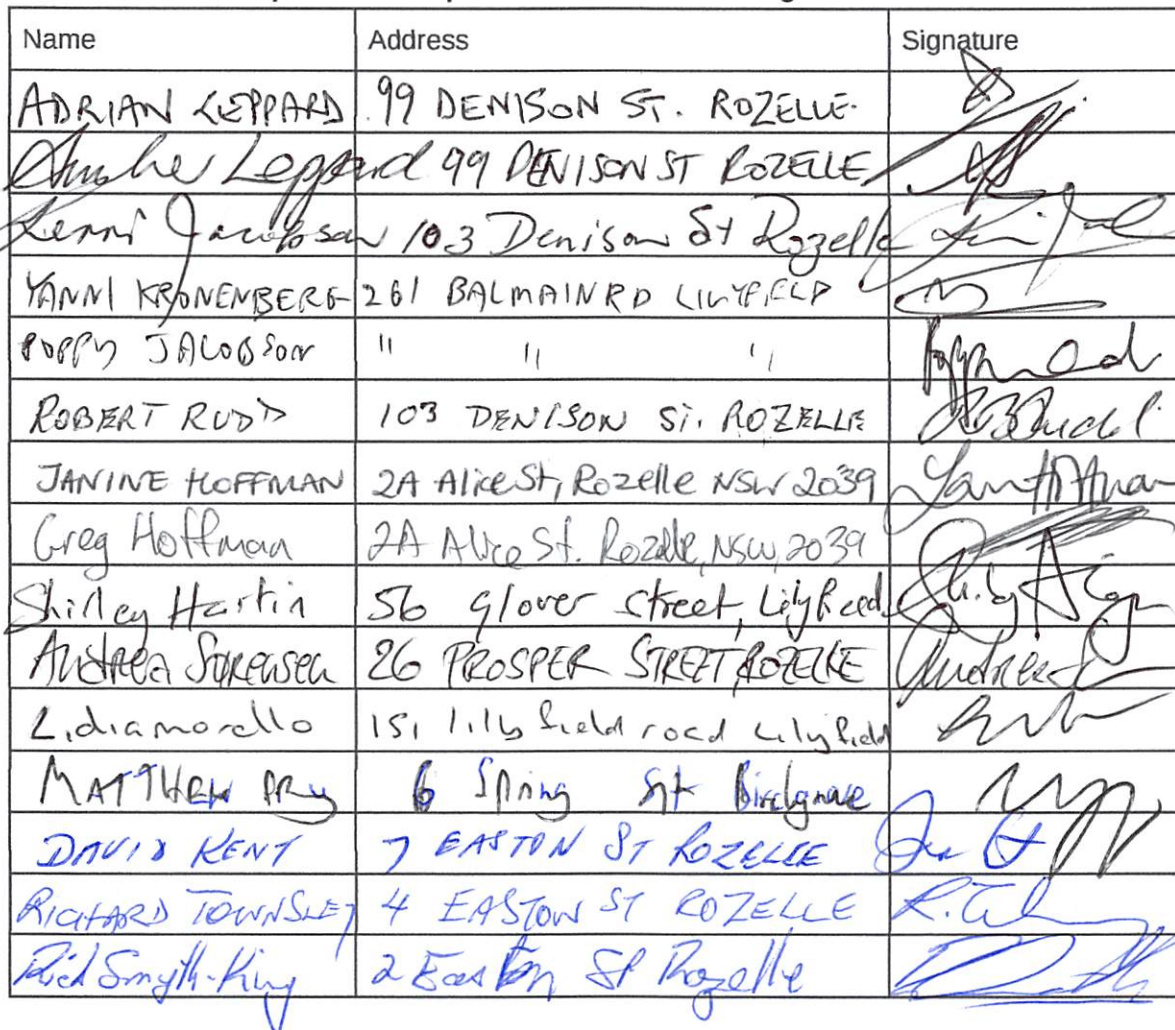 Name Address Signature
ADRIAN LEPPARD 99 DENISON ST. ROZELLE.
Leppard 99 DENISON ST ROZELLE
Lenni Jacobson 103 Denison St Rozelle
YANNI KRONENBERG 261 BALMAIN RD LILYFIELD
POPPY JACOBSON " " "
ROBERT RUDD 103 DENISON ST. ROZELLE
JANINE HOFFMAN 2A Alice St, Rozelle NSW 2039
Greg Hoffman 2A Alice St. Rozelle, NSW, 2039
Shirley Hartin 56 Glover street, Lilyfield
Andrea Sorensen 26 PROSPER STREET ROZELLE
Lidia morello 151 lilyfield road Lilyfield
MATTHEW 6 Spring
DAVID KENT 7 EASTON ST ROZELLE
RICHARD TOWNSLEY 4 EASTON ST ROZELLE
Smyth-King 2 Easton St Rozelle